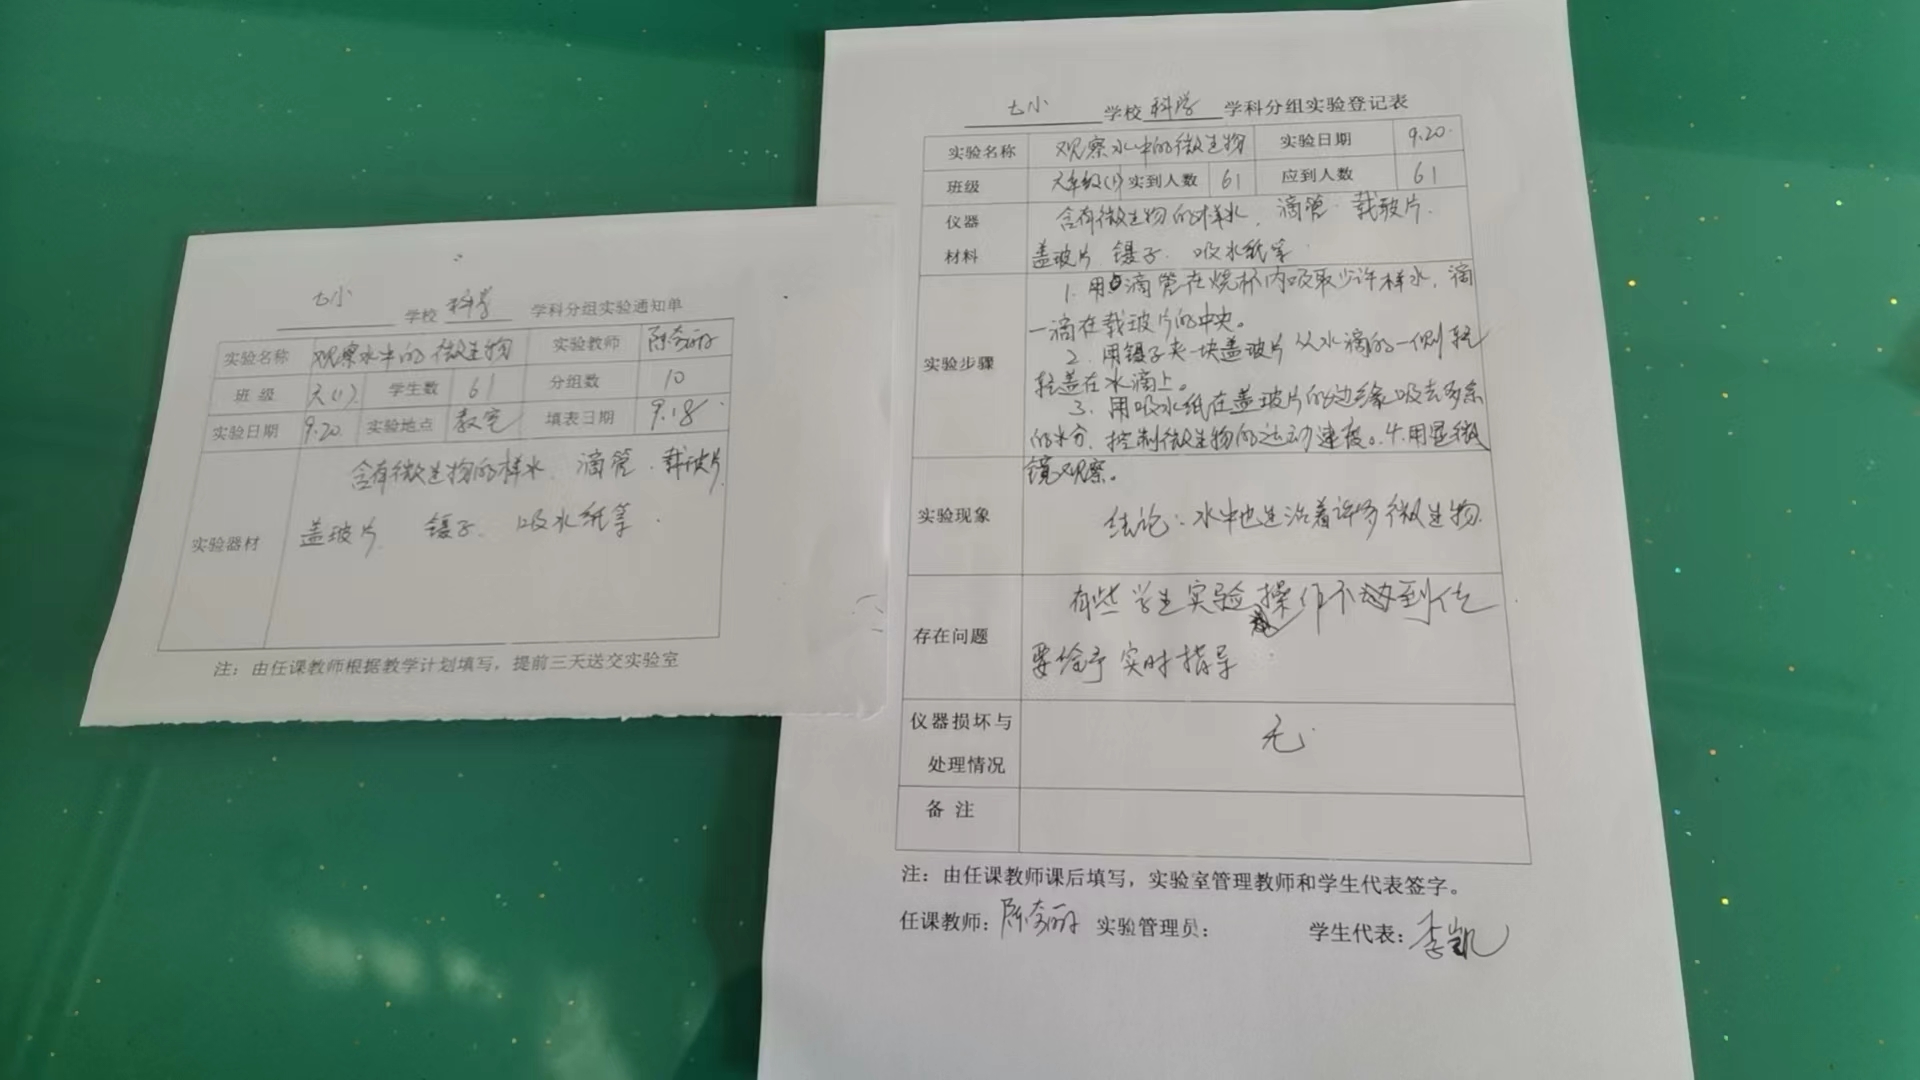 七小 学校 科学 学科分组实验通知单
实验名称 观察水中的微生物 实验教师 陈奇丽
班级 六(1) 学生数 61 分组数 10
实验日期 9.20. 实验地点 教室 填表日期 9.18
实验器材 含有微生物的样水、滴管、载玻片
盖玻片 镊子、吸水纸等.
注：由任课教师根据教学计划填写，提前三天送交实验室
七小 学校 科学 学科分组实验登记表
实验名称 观察水中的微生物 实验日期 9.20.
班级 六年级(1) 实到人数 61 应到人数 61
仪器 含有微生物的样水、滴管、载玻片.
材料 盖玻片 镊子、吸水纸等
1. 用滴管在烧杯内吸取少许样水，滴
一滴在载玻片的中央。
2. 用镊子夹一块盖玻片从水滴的一侧轻
实验步骤
轻盖在水滴上。
3. 用吸水纸在盖玻片的边缘吸去多余
的水分、控制微生物的运动速度。4.用显微
镜观察。
实验现象 结论：水中也生活着许多微生物.
有些学生实验操作不够到位
存在问题
要给予实时指导
仪器损坏与
处理情况 无.
备注
注：由任课教师课后填写，实验室管理教师和学生代表签字。
任课教师：陈奇丽 实验管理员： 学生代表：李凯